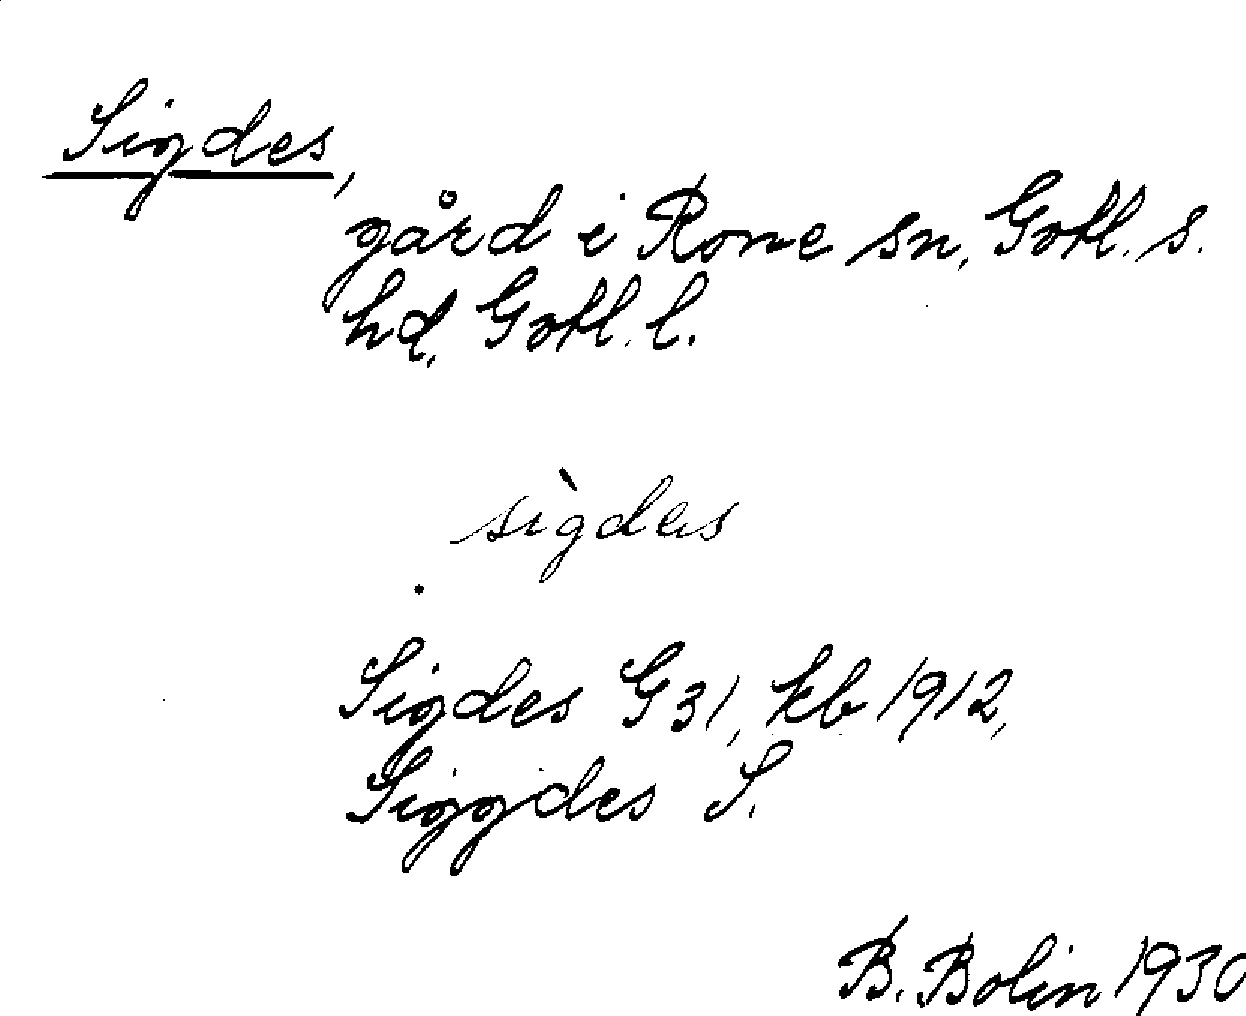 Sigdes,
gård i Rone sn, Gotl. s.
hd, Gotl. l.
sìgdas
Sigdes G 31, kb 1912,
Siggdes S.
B. Bolin 1930